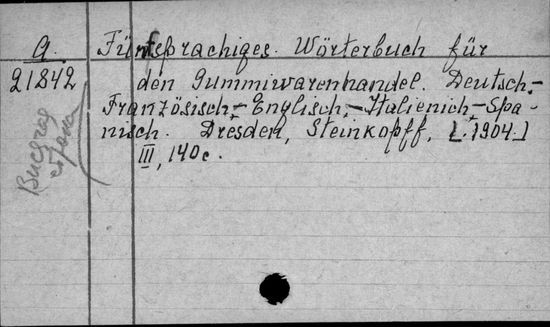 A.
21842
Fünfsprachiges Wörterbuch für
den Gummiwarenhandel. Deutsch,-
Französisch,-Englisch,-Italienich,-Spa-
nisch. Dresden, Steinkopff, [1904.]
III, 140 c.